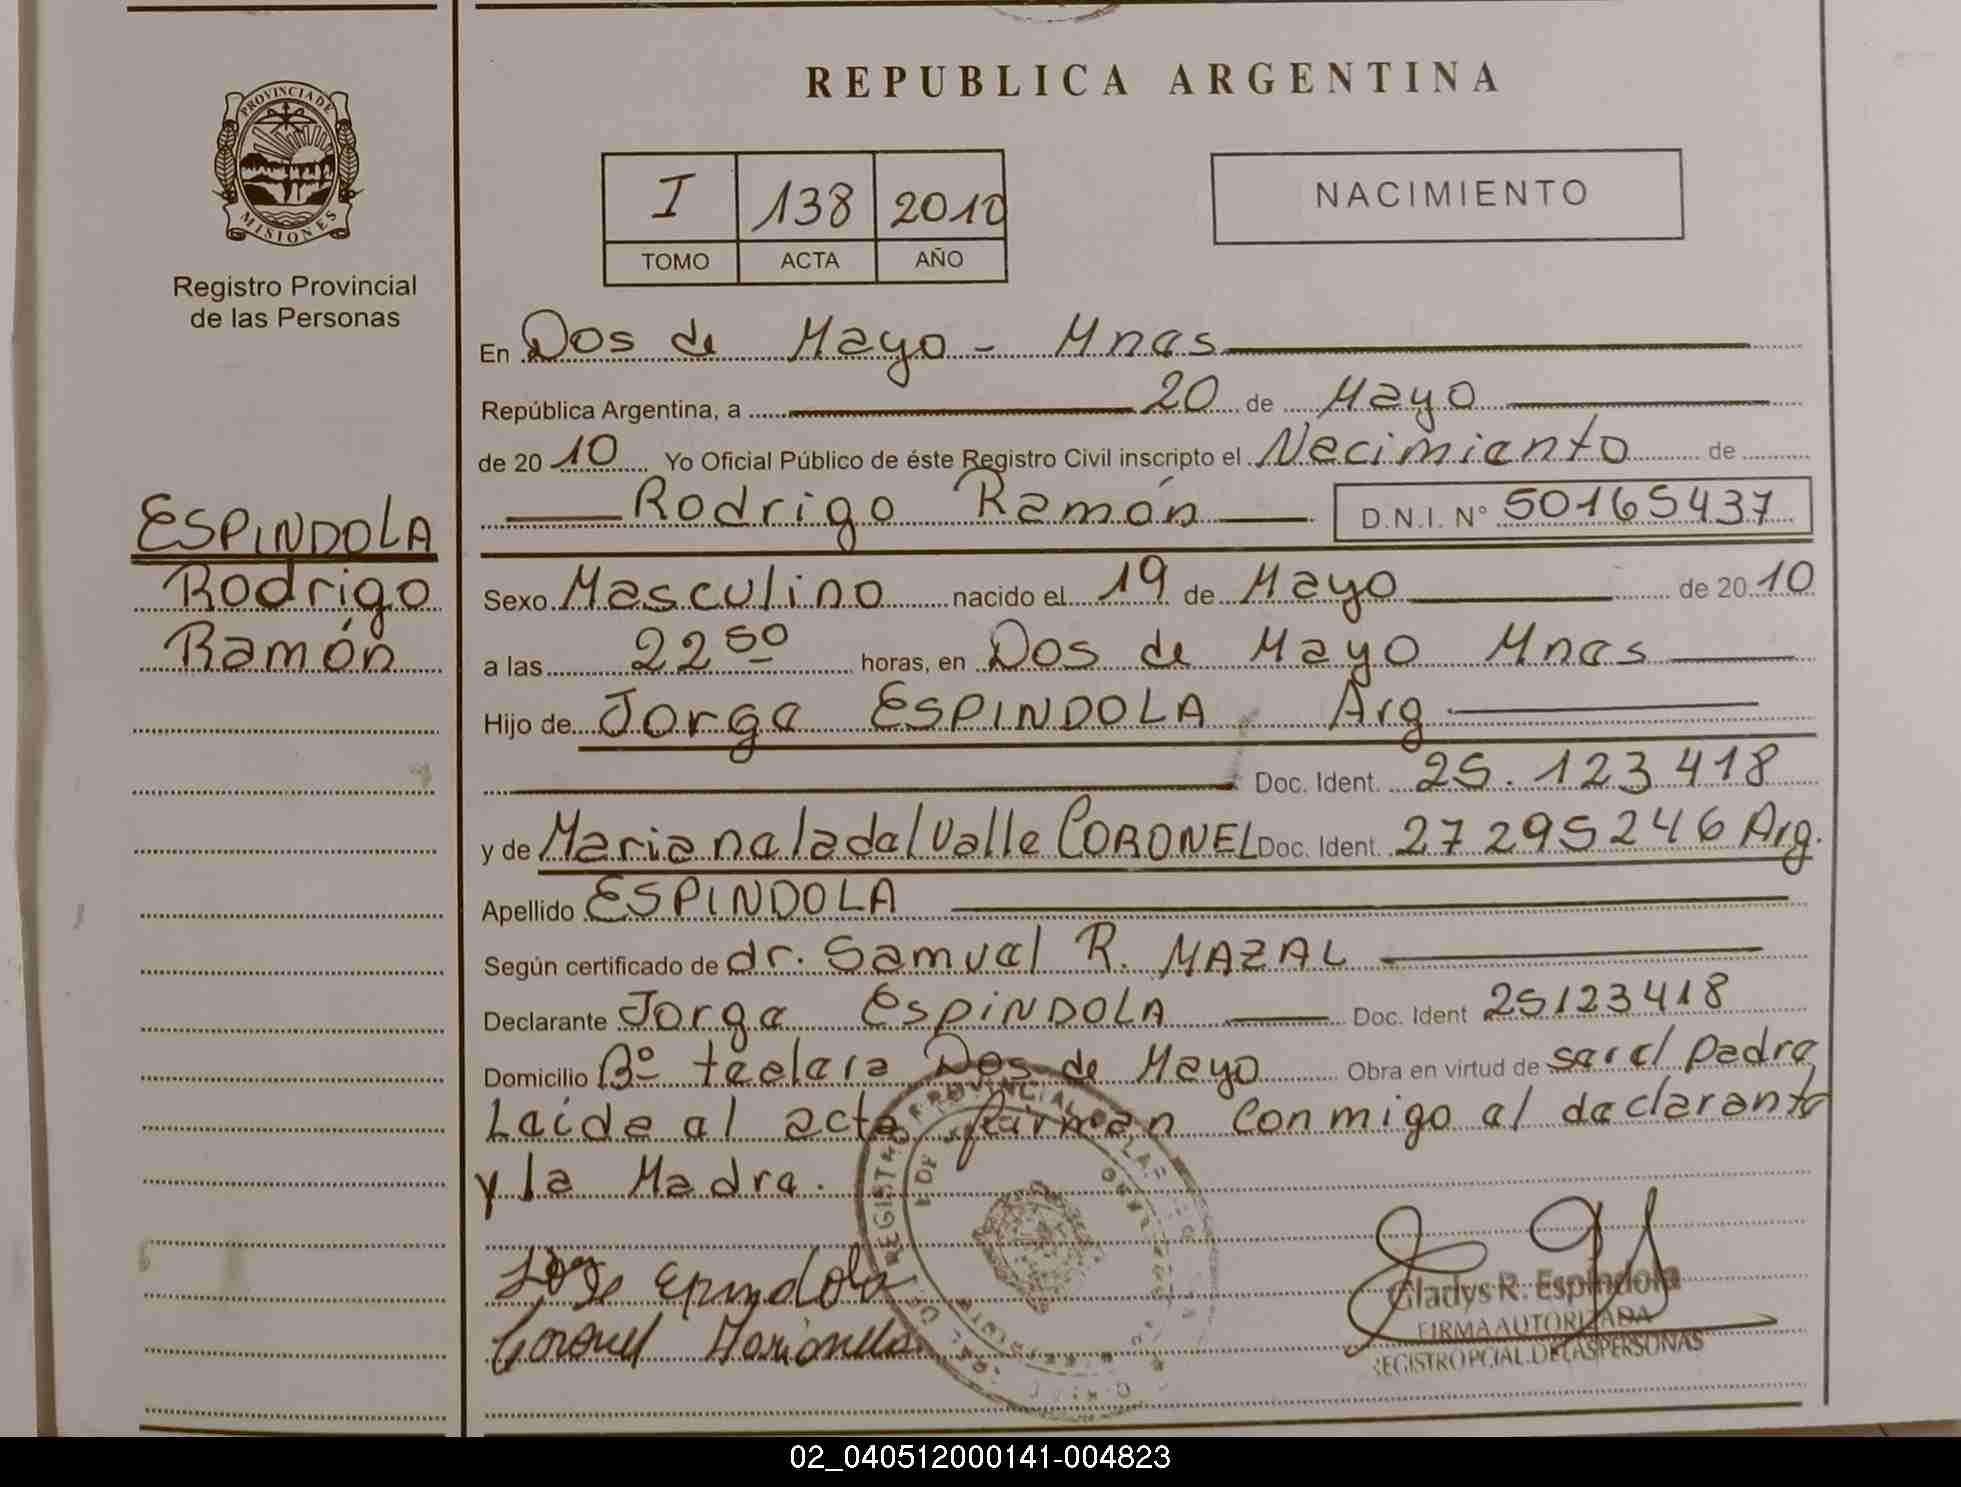 REPUBLICA ARGENTINA
PROVINCIA DE
MISIONES
Registro Provincial
de las Personas
I 138 2010
TOMO ACTA AÑO
NACIMIENTO
En Dos de Mayo - Mnes
República Argentina, a 20 de Mayo
de 20 10 Yo Oficial Público de éste Registro Civil inscripto el Nacimiento de
Rodrigo Ramón D.N.I. N° 50165437
ESPINDOLA
Rodrigo
Ramón
Sexo Masculino nacido el 19 de Mayo de 20 10
a las 22 50 horas, en Dos de Mayo Mnes
Hijo de Jorge ESPINDOLA Arg
Doc. Ident. 25.123418
y de Marianela del Valle CORONEL Doc. Ident. 27295246 Arg.
Apellido ESPINDOLA
Según certificado de dr. Samuel R. MAZAL
Declarante Jorge ESPINDOLA Doc. Ident 25123418
Domicilio B° Dos de Mayo Obra en virtud de ser el padre
Leída el acta firman conmigo el declarante
y la Madre.
Coronel Marianela
Gladys R. Espíndola
FIRMA AUTORIZADA
REGISTRO PCIAL. DE LAS PERSONAS
02_040512000141-004823